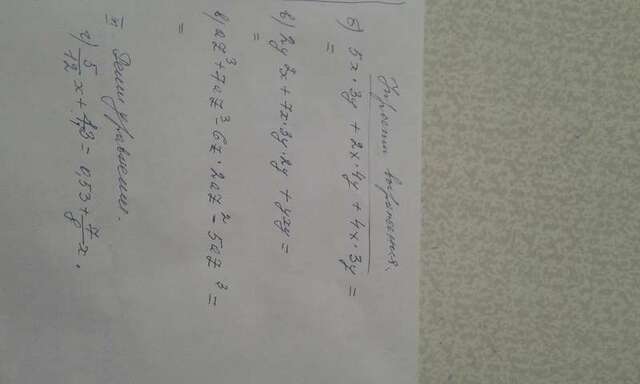 Упрости выражения.
б) 5x·3y + 2x·4y + 4x·3y =
=
в) 2y·2x + 7x·3y·2y + yxy =
=
в) az³ + 7az³ - 6z·2az² - 5az³ =
=
II Реши уравнения.
г) 5/12 x + 1,3 = 0,53 + 7/8 x.